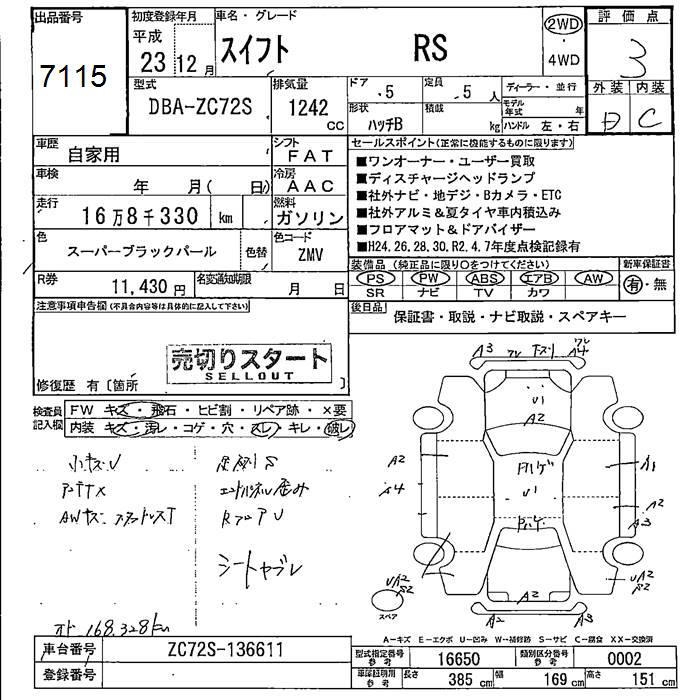 出品番号
7115
初度登録年月
平成
23 12 月
車名・グレード
スイフト RS
2WD
・
4WD
評価点
3
外装 内装
D C
型式
DBA-ZC72S
排気量
1242
CC
ドア
.5
定員
.5 人
形状
ハッチB
積載
kg
ディーラー・並行
モデル
年式 年
ハンドル 左・右
車歴
自家用
シフト
FAT
車検
年 月( 日)
冷房
AAC
走行
16万8千330 km
燃料
ガソリン
色
スーパーブラックパール
色替
色コード
ZMV
R券
11,430 円
名変通知期限
月 日
セールスポイント(正常に機能するものに限ります)
■ワンオーナー・ユーザー買取
■ディスチャージヘッドランプ
■社外ナビ・地デジ・Bカメラ・ETC
■社外アルミ&夏タイヤ車内積込み
■フロアマット&ドアバイザー
■H24.26.28.30.R2.4.7年度点検記録有
装備品(純正品に限り○をつけてください)
PS PW ABS エアB AW
SR ナビ TV カワ
新車保証書
有・無
後日品
保証書・取説・ナビ取説・スペアキー
注意事項申告欄(不具合内容等は具体的に記入して下さい)
売切りスタート
SELLOUT
修復歴 有〔箇所 〕
検査員
記入欄
FW キズ・飛石・ヒビ割・リペア跡・×要
内装 キズ・汚レ・コゲ・穴・スレ・キレ・破レ
小キズU
シートヤブレ
オド 168.328km
A3
A4
U1
A2
A2
A4
U1
A1
A2
A3
UA2
S2
UA2
S2
A2
A2
A3
スペア
A-キズ E-エクボ U-凹み W-補修跡 S-サビ C-腐食 XX-交換済
車台番号
ZC72S-136611
登録番号
型式指定番号
参考
16650
類別区分番号
参考
0002
車検証記明用
参考
長さ
385 cm
幅
169 cm
高さ
151 cm